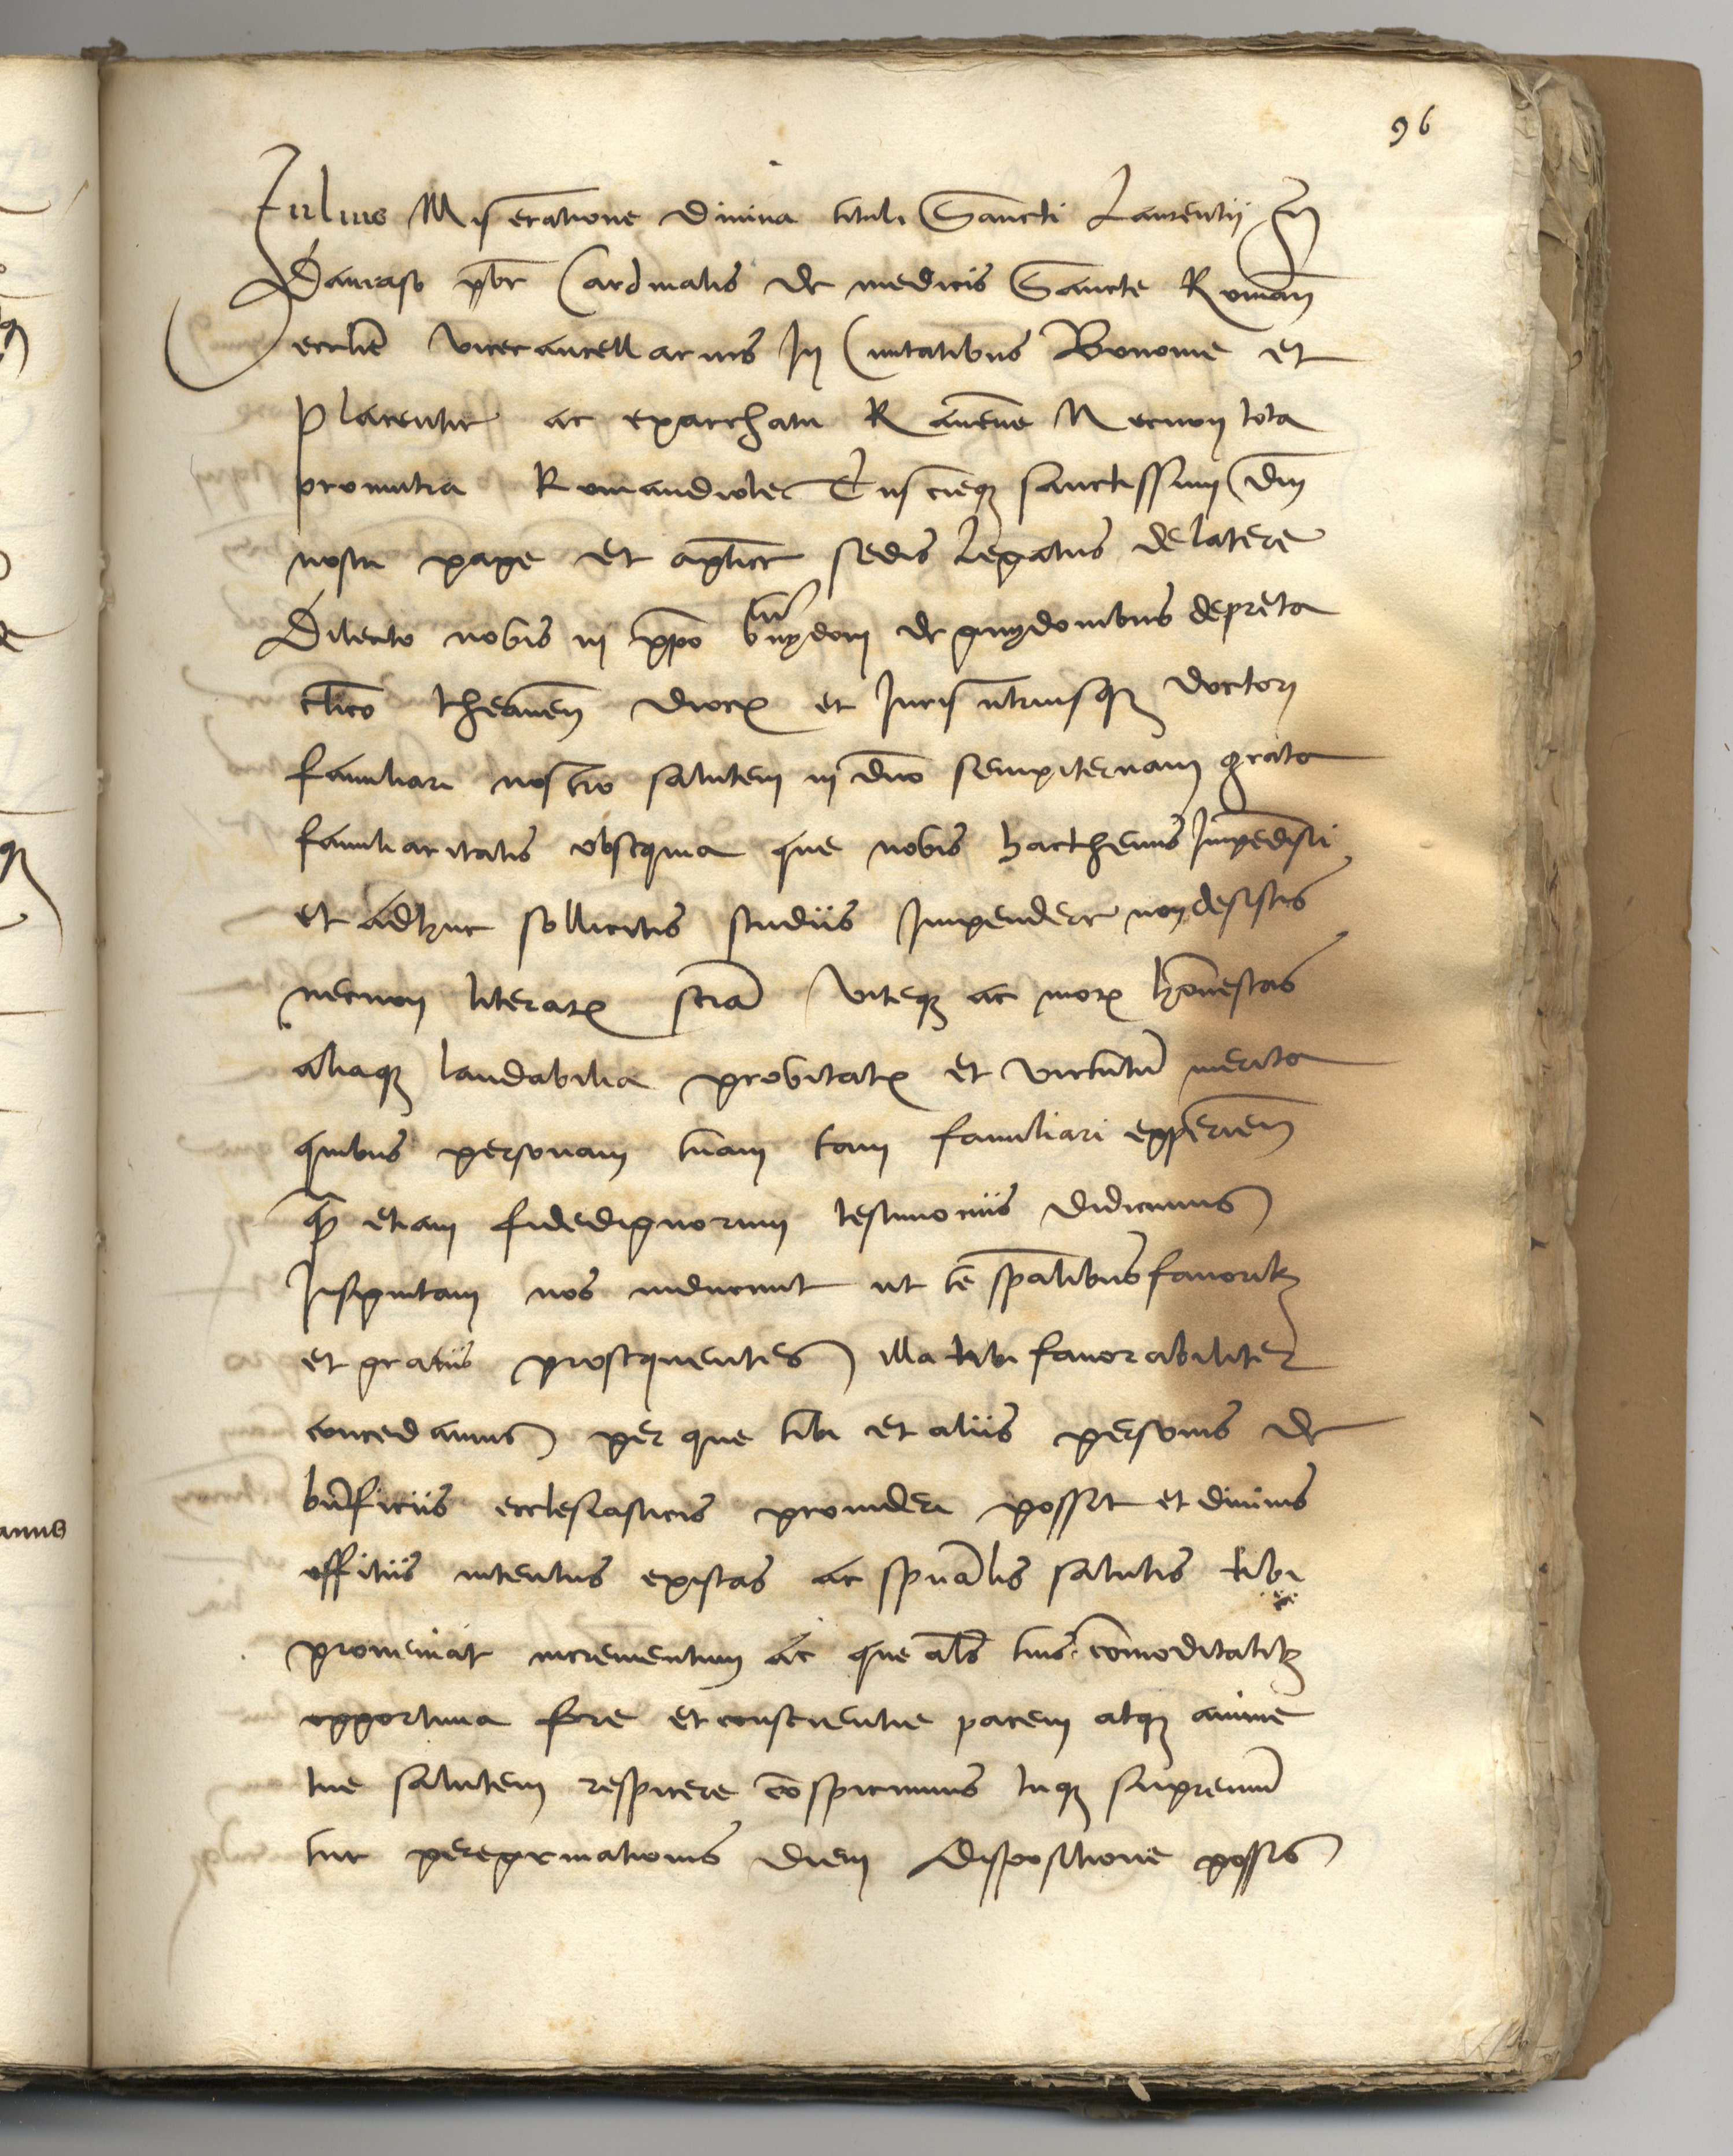 96
Iulius Miseratione Divina tituli Sancti Laurentij In
Damaso pbr Cardinalis de medicis Sancte Roman
ecclie vicecancellarius In Civitatibus Bononie et
Placentie ac exarchatu Ravenne Necnon tota
provintia Romandiole Tuscieq sanctissimi dni
nostri pape et aplice sedis Legatus de latere
Dilecto nobis in xpo de guydonibus de preta
clico theanen dioc et Iuris utriusq doctori
familiari nostro salutem in dno sempiternam grata
familiaritatis obsequia que nobis hacthenus Impendisti
et adhuc sollicitis studiis Impendere non desistis
necnon literar scia viteq ac mor honestas
aliaq laudabilia probitat et virtutu merita
quibus personam tuam tam familiari experien
q etiam fidedignorum testimoniis didicimus
Insignitam nos inducunt ut te spalibus favorib
et gratiis prosequentes illa tibi favorabiliter
concedamus per que tibi et aliis personis de
bnficiis ecclesiasticis provideri possit et divinis
offitiis intentus existas ac spualis salutis tibi
proveniat incrementum ac que als tuis comoditatib
opportuna fore et conscientie pacem atq anime
tue salutem respicere conspicimus tuq supremu
tue peregrinationis diem dispositione possis
anus